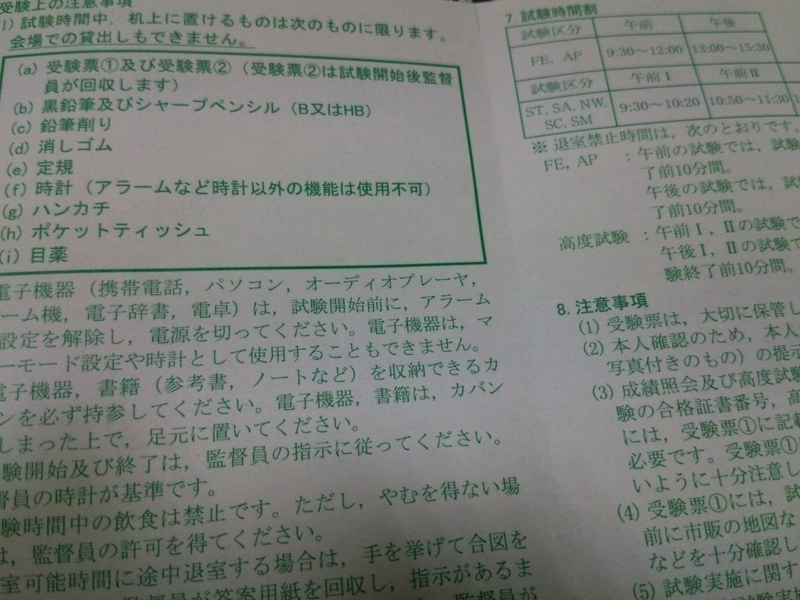 受験上の注意事項
1) 試験時間中，机上に置けるものは次のものに限ります。
会場での貸出しもできません。
(a) 受験票①及び受験票②（受験票②は試験開始後監督
員が回収します）
(b) 黒鉛筆及びシャープペンシル（B又はHB）
(c) 鉛筆削り
(d) 消しゴム
(e) 定規
(f) 時計（アラームなど時計以外の機能は使用不可）
(g) ハンカチ
(h) ポケットティッシュ
(i) 目薬
電子機器（携帯電話，パソコン，オーディオプレーヤ，
ーム機，電子辞書，電卓）は，試験開始前に，アラーム
設定を解除し，電源を切ってください。電子機器は，マ
ーモード設定や時計として使用することもできません。
電子機器，書籍（参考書，ノートなど）を収納できるカ
ンを必ず持参してください。電子機器，書籍は，カバン
しまった上で，足元に置いてください。
験開始及び終了は，監督員の指示に従ってください。
督員の時計が基準です。
験時間中の飲食は禁止です。ただし，やむを得ない場
は，監督員の許可を得てください。
室可能時間に途中退室する場合は，手を挙げて合図を
監督員が答案用紙を回収し，指示があるま
監督員が
7. 試験時間割
試験区分 午前 午後
FE, AP 9:30～12:00 13:00～15:30
試験区分 午前Ⅰ 午前Ⅱ
ST, SA, NW, SC, SM 9:30～10:20 10:50～11:30
※ 退室禁止時間は，次のとおりです。
FE, AP ：午前の試験では，試
了前10分間。
午後の試験では，試
了前10分間。
高度試験 ：午前Ⅰ，Ⅱの試験で
午後Ⅰ，Ⅱの試験で
験終了前10分間。
8. 注意事項
(1) 受験票は，大切に保管し
(2) 本人確認のため，本人
写真付きのもの）の提示
(3) 成績照会及び高度試験
験の合格証書番号，高
には，受験票①に記載
必要です。受験票①
いように十分注意し
(4) 受験票①には，試
前に市販の地図な
などを十分確認し
(5) 試験実施に関す
試験実施